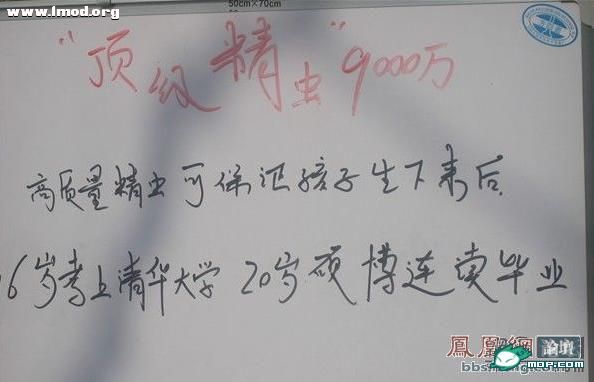 www.lmod.org
50cm×70cm
"顶级精虫"9000万
高质量精虫可保证孩子生下来后
16岁考上清华大学 20岁硕博连读毕业
凤凰网 論壇
mop.com